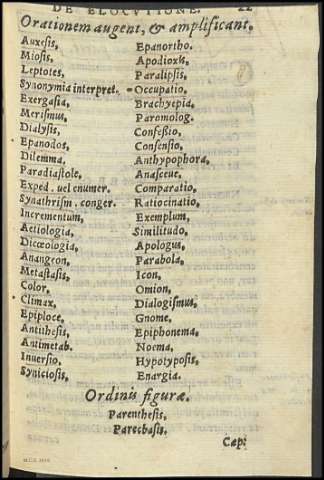 DE ELOCVTIONE. 22
Orationem augent, & amplificant.
Auxesis,
Miosis,
Leptotes,
Synonymia interpret.
Exergasia,
Merismus,
Dialysis,
Epanodos,
Dilemma,
Paradiastole,
Exped. uel enumer.
Synathrism. conger.
Incrementum,
Aetiologia,
Dicæologia,
Anangeon,
Metastasis,
Color,
Climax,
Epiploce,
Antithesis,
Antimetab.
Inuersio,
Syniciosis,
Epanortho.
Apodioxis,
Paralipsis,
Occupatio,
Brachyepia,
Paromolog.
Confeßio,
Consensio,
Anthypophora,
Anasceue,
Comparatio,
Ratiocinatio,
Exemplum,
Similitudo,
Apologus,
Parabola,
Icon,
Omion,
Dialogismus,
Gnome,
Epiphonema,
Noema,
Hypotyposis,
Enargia.
Ordinis figuræ.
Parenthesis,
Parecbasis.
Cap: